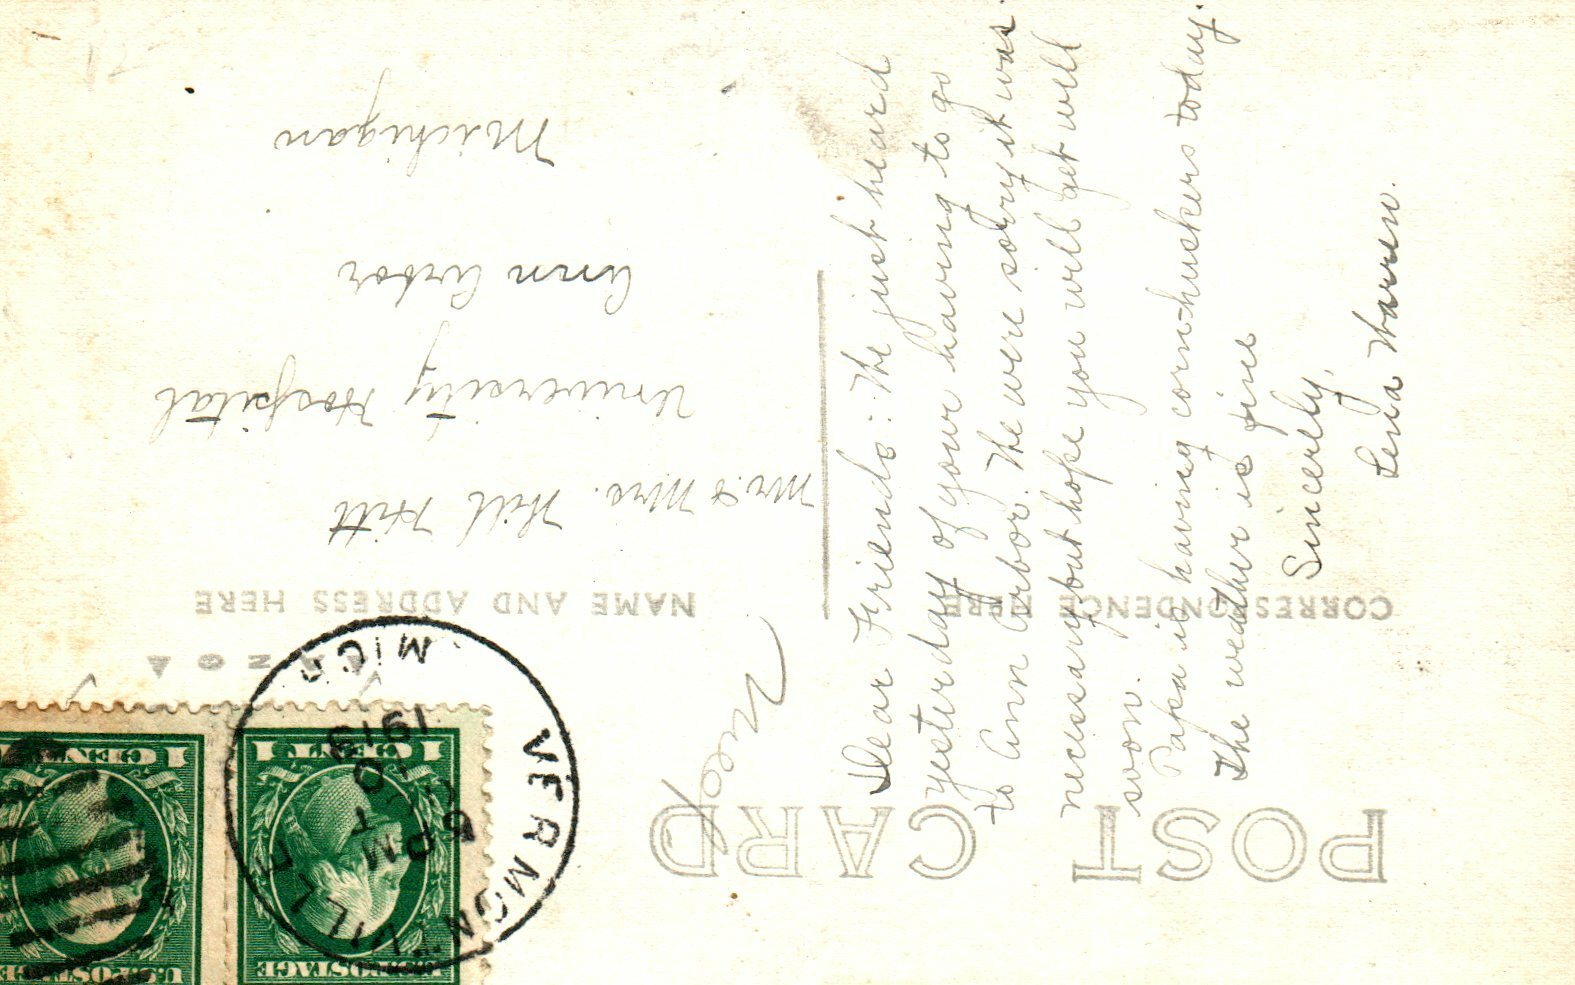 POST CARD
CORRESPONDENCE HERE
Dear Friends: We just heard
yesterday of your having to go
to Ann Arbor. We were sorry it was
necessary but hope you will get well
soon.
Papa is having corn-huskers today.
The weather is fine
Sincerely,
Lena Warren.
AZO
NAME AND ADDRESS HERE
Mr. & Mrs. Will Hill
University Hospital
Ann Arbor
Michigan
VERMONTVILLE
MICH
5 PM
OCT
1919
U.S. POSTAGE
1 CENT 1
U.S. POSTAGE
1 CENT